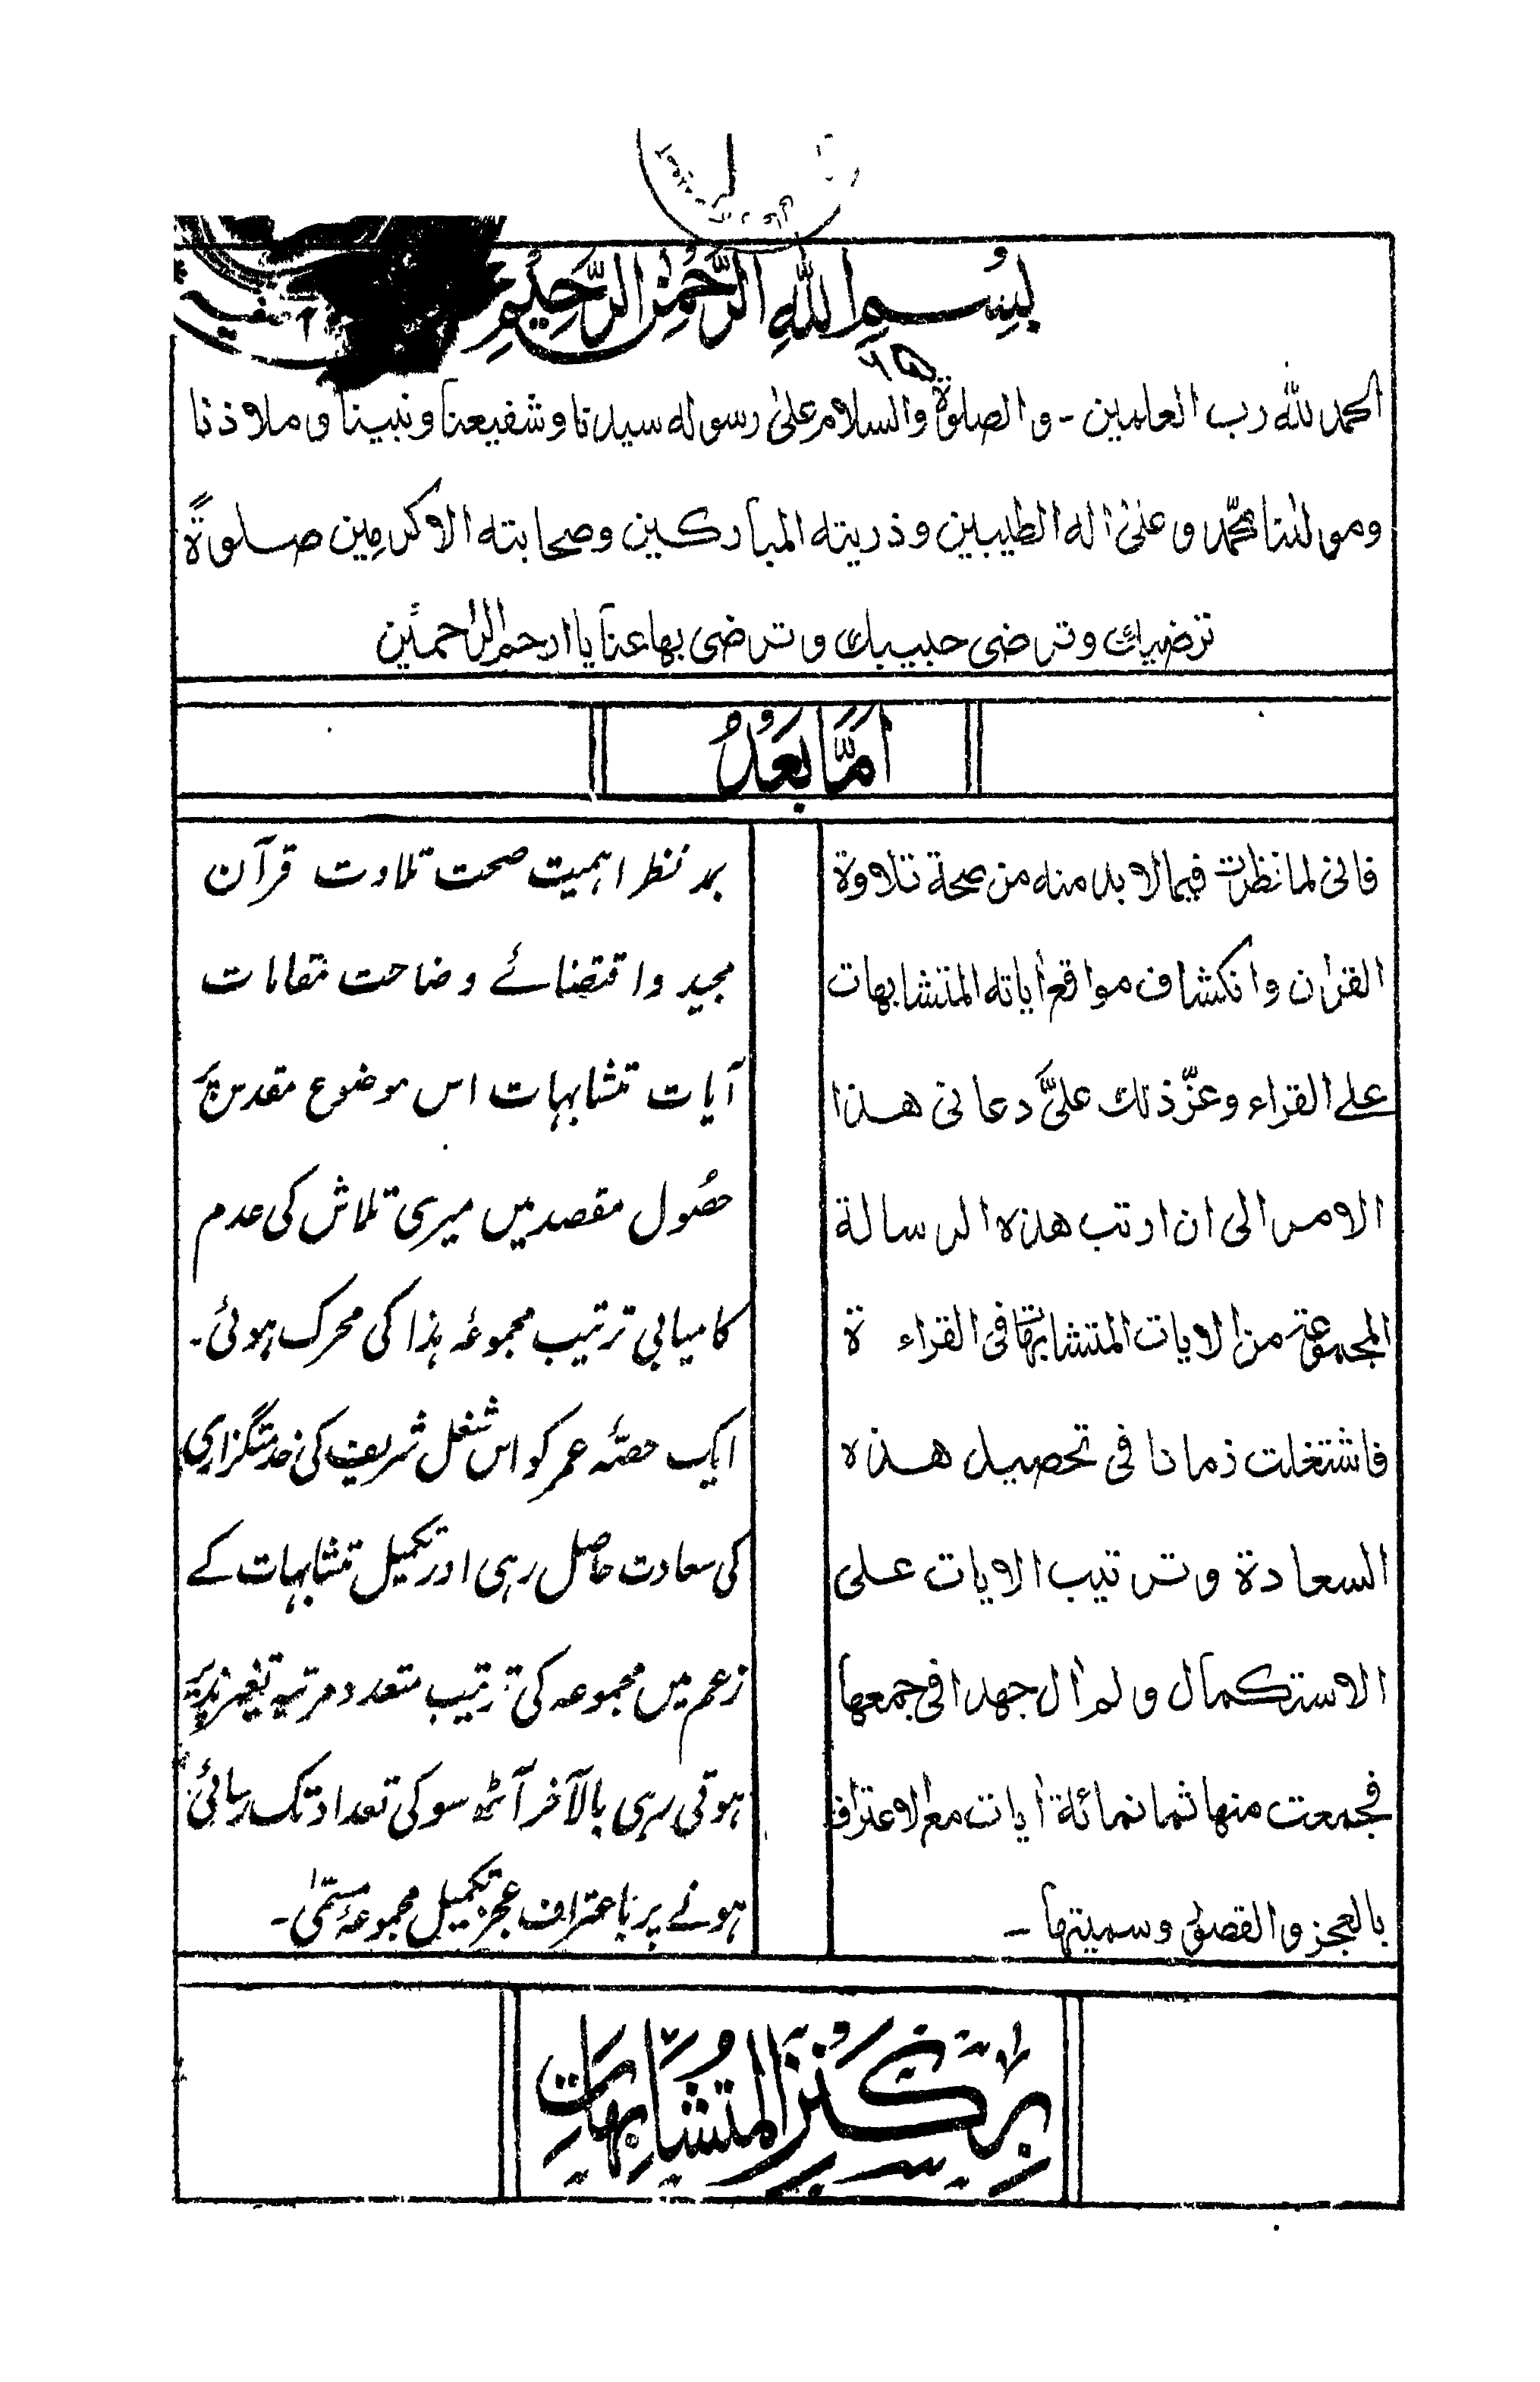 بِسْمِ اللهِ الرَّحْمٰنِ الرَّحِيْمِ
الحمد لله رب العلمين - والصلوة والسلام على رسوله سيدنا وشفيعنا ونبينا وملاذنا
ومولٰنا محمّد وعلىٰ اله الطيبين وذريته المباركين وصحابته الاكرمين صلوةً
ترضيك وترضى حبيبك وترضى بها عنا يا ارحم الراحمين
اَمَّا بَعْدُ
فانى لما نظرت فيما لا بد منه من صحة تلاوة
القراٰن وانكشاف مواقع اٰياته المتشابهات
على القراء وعزّ ذلك علىَّ دعانى هذا
الامر الى ان ارتب هذه الرسالة
المجموعة من الايات المتشابهة فى القراءة
فاشتغلت زمانا فى تحصيل هذه
السعادة وترتيب الايات على
الاستكمال ولم اٰل جهدا فى جمعها
فجمعت منها ثمانمائة اٰيات مع الاعتراف
بالعجز والقصور وسميتها -
بمد نظر اہمیت صحت تلاوت قرآن
مجید و اقتضائے وضاحت مقامات
آیات متشابہات اس موضوع مقدس پر
حصُول مقصد میں میری تلاش کی عدم
کامیابی ترتیب مجموعہ ہذا کی محرک ہوئی۔
ایک حصّہ عمر کو اس شغل شریف کی خدمتگزاری
کی سعادت حاصل رہی اور تکمیل متشابہات کے
زعم میں مجموعہ کی ترتیب متعدد مرتبہ تغیر پذیر
ہوتی رہی بالآخر آٹھ سو کی تعداد تک رسائی
ہونے پر باعتراف عجز تکمیل مجموعۂ مسمّیٰ۔
بِكَنْزِ الْمُتَشَابِهَاتِ